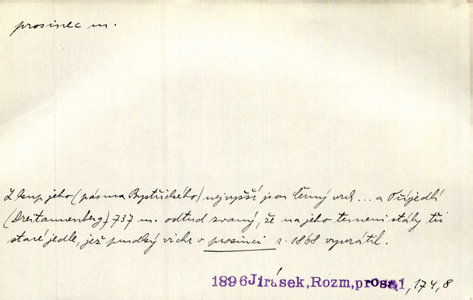 prosinec m.
Z kup jeho (pásma Bystřického) nejvyšší jsou Černý vrch ... a Tříjedlí
(Dreitannenberg) 737 m. odtud zvaný, že na jeho temeni stály tři
staré jedle, jež prudký vichr v prosinci r. 1868 vyvrátil.
1896 Jirásek, Rozm, prosa1, 174, 8